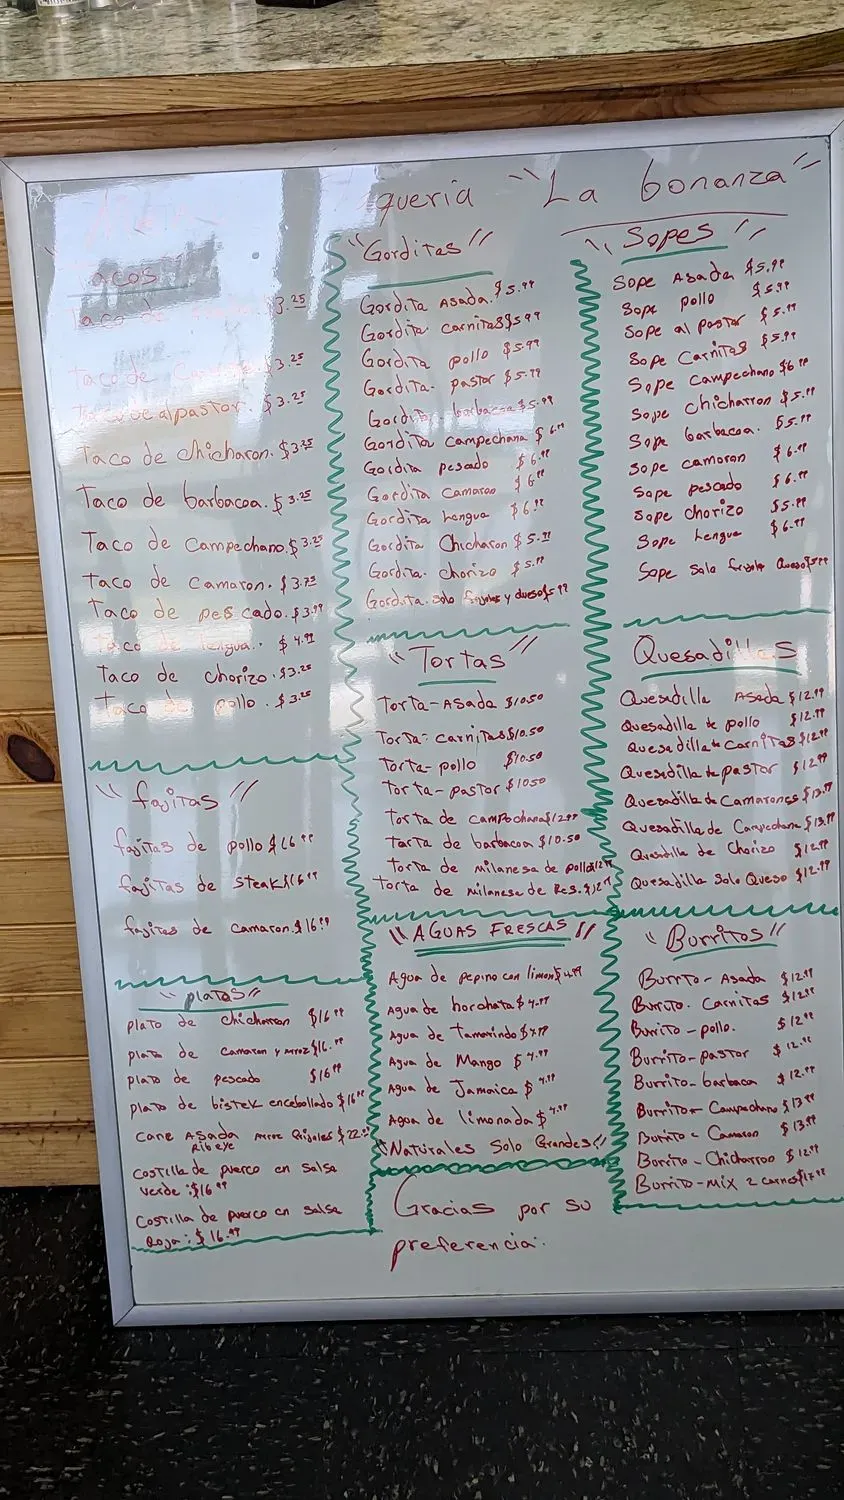 queria "La bonanza"
Tacos
Taco de $3.25
Taco de $3.25
Taco de al pastor. $3.25
Taco de chicharon. $3.25
Taco de barbacoa. $3.25
Taco de Campechano. $3.25
Taco de Camaron. $3.75
Taco de pescado. $3.99
Taco de lengua. $4.99
Taco de chorizo. $3.25
Taco de pollo. $3.25
"fajitas"
fajitas de pollo $16.99
fajitas de steak $16.99
fajitas de camaron. $16.99
"platos"
plato de chicharron $16.99
plato de camaron y arroz $16.99
plato de pescado $16.99
plato de bistek encebollado $16.99
Carne Asada Arroz frijoles $22.99
Ribeye
Costilla de puerco en salsa
verde: $16.99
Costilla de puerco en salsa
Roja: $16.99
"Gorditas"
Gordita Asada. $5.99
Gordita carnitas $5.99
Gordita pollo $5.99
Gordita. pastor $5.99
Gordita barbacoa $5.99
Gordita campechana $6.99
Gordita pescado $6.99
Gordita Camaron $6.99
Gordita Lengua $6.99
Gordita Chicharon $5.99
Gordita. chorizo $5.99
Gordita. solo frijoles y queso $5.99
"Tortas"
Torta-Asada $10.50
Torta-carnitas $10.50
Torta-pollo $10.50
Torta-pastor $10.50
Torta de campechana $12.99
Torta de barbacoa $10.50
Torta de milanesa de pollo $12.99
Torta de milanesa de Res. $12.99
"AGUAS FRESCAS"
Agua de pepino con limon $4.99
Agua de horchata $4.99
Agua de tamarindo $4.99
Agua de Mango $4.99
Agua de Jamaica $4.99
Agua de limonada $4.99
"Naturales Solo Grandes"
Gracias por su
preferencia.
"Sopes"
Sope Asada $5.99
Sope pollo $5.99
Sope al pastor $5.99
Sope Carnitas $5.99
Sope Campechano $6.99
Sope chicharron $5.99
Sope barbacoa. $5.99
Sope camaron $6.99
Sope pescado $6.99
Sope chorizo $5.99
Sope Lengua $6.99
Sope solo frijole Queso $5.99
Quesadillas
Quesadilla Asada $12.99
Quesadilla de pollo $12.99
Quesadilla de carnitas $12.99
Quesadilla de pastor $12.99
Quesadilla de Camarones $13.99
Quesadilla de Campechana $13.99
Quesadilla de Chorizo $12.99
Quesadilla Solo Queso $12.99
"Burritos"
Burrito-Asada $12.99
Burrito. Carnitas $12.99
Burrito-pollo. $12.99
Burrito-pastor $12.99
Burrito-barbaca $12.99
Burrito-Campechano $13.99
Burrito-Camaron $13.99
Burrito-Chicharron $12.99
Burrito-mix 2 carnes $13.99